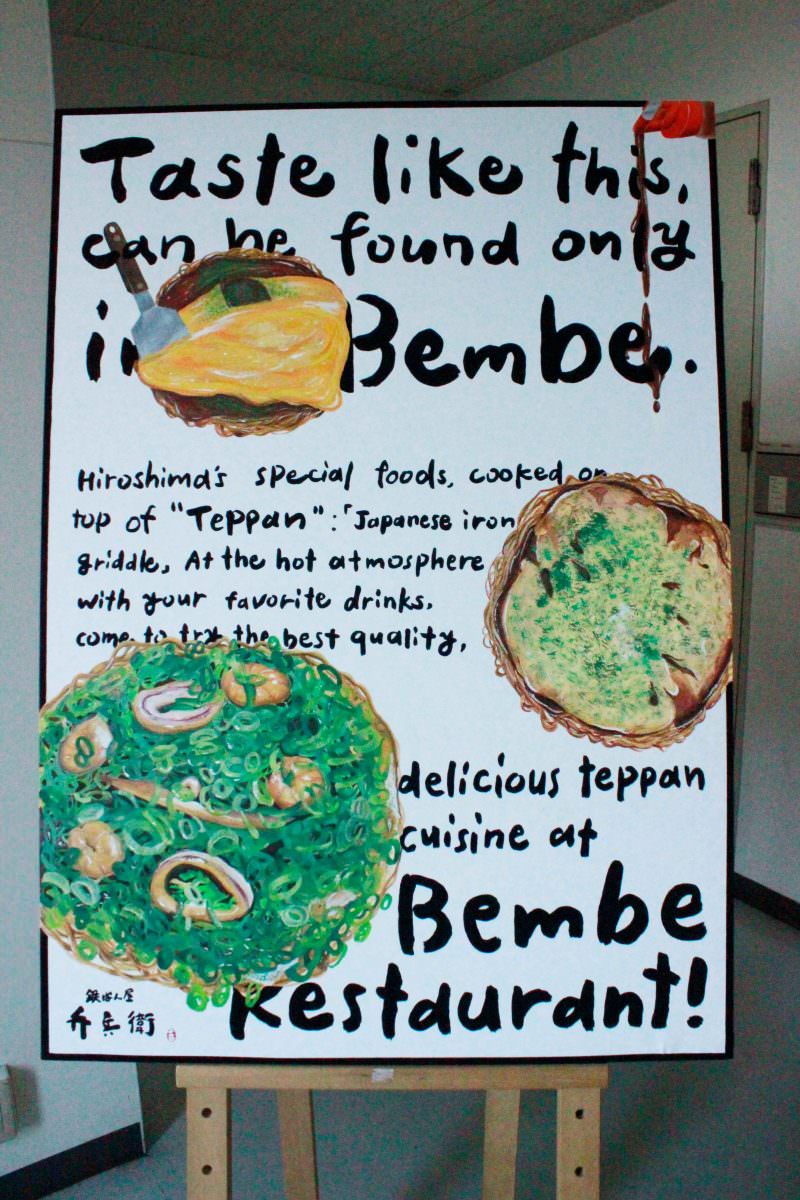 Taste like this,
can be found only
in Bembe.
Hiroshima's special foods, cooked on
top of "Teppan":「Japanese iron
griddle, At the hot atmosphere
with your favorite drinks.
come to try the best quality,
delicious teppan
cuisine at
Bembe
Restaurant!
鉄ぱん屋
弁兵衛